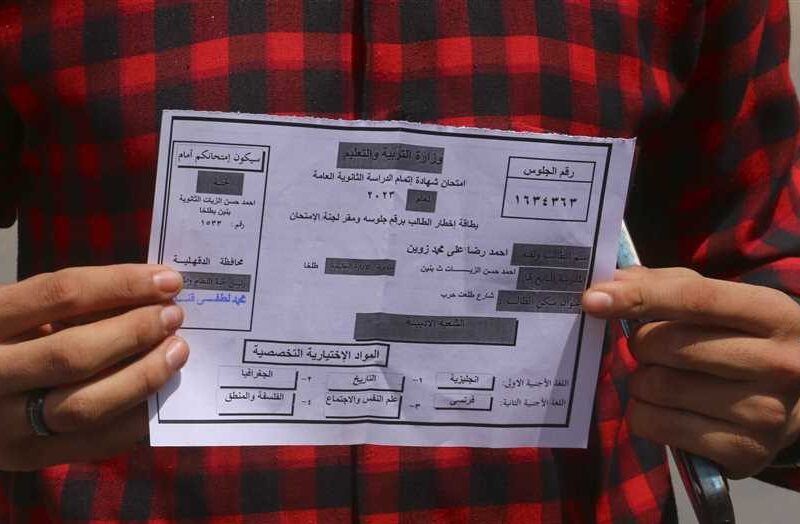 وزارة التربية والتعليم
امتحان شهادة إتمام الدراسة الثانوية العامة
لعام ٢٠٢٣
بطاقة اخطار الطالب برقم جلوسه ومقر لجنة الإمتحان
رقم الجلوس
١٦٣٤٣٦٣
سيكون إمتحانكم أمام
لجنة
احمد حسن الزيات الثانوية
بنين بطلخا
رقم: ١٥٣٣
محافظة الدقهلية
رئيس عام اللجنة
محمد لطفى
اسم الطالب ولقبه احمد رضا على محمد زوين
المدرسة التابع لها احمد حسن الزيـــات ث بنين طلخا
عنوان سكن الطالب شارع طلعت حرب
الشعبة الادبية
المواد الإختيارية التخصصية
اللغة الأجنبية الاولى: انجليزية ١- التاريخ ٢- الجغرافيا
اللغة الأجنبية الثانية: فرنسى ٣- علم النفس والاجتماع ٤- الفلسفة والمنطق